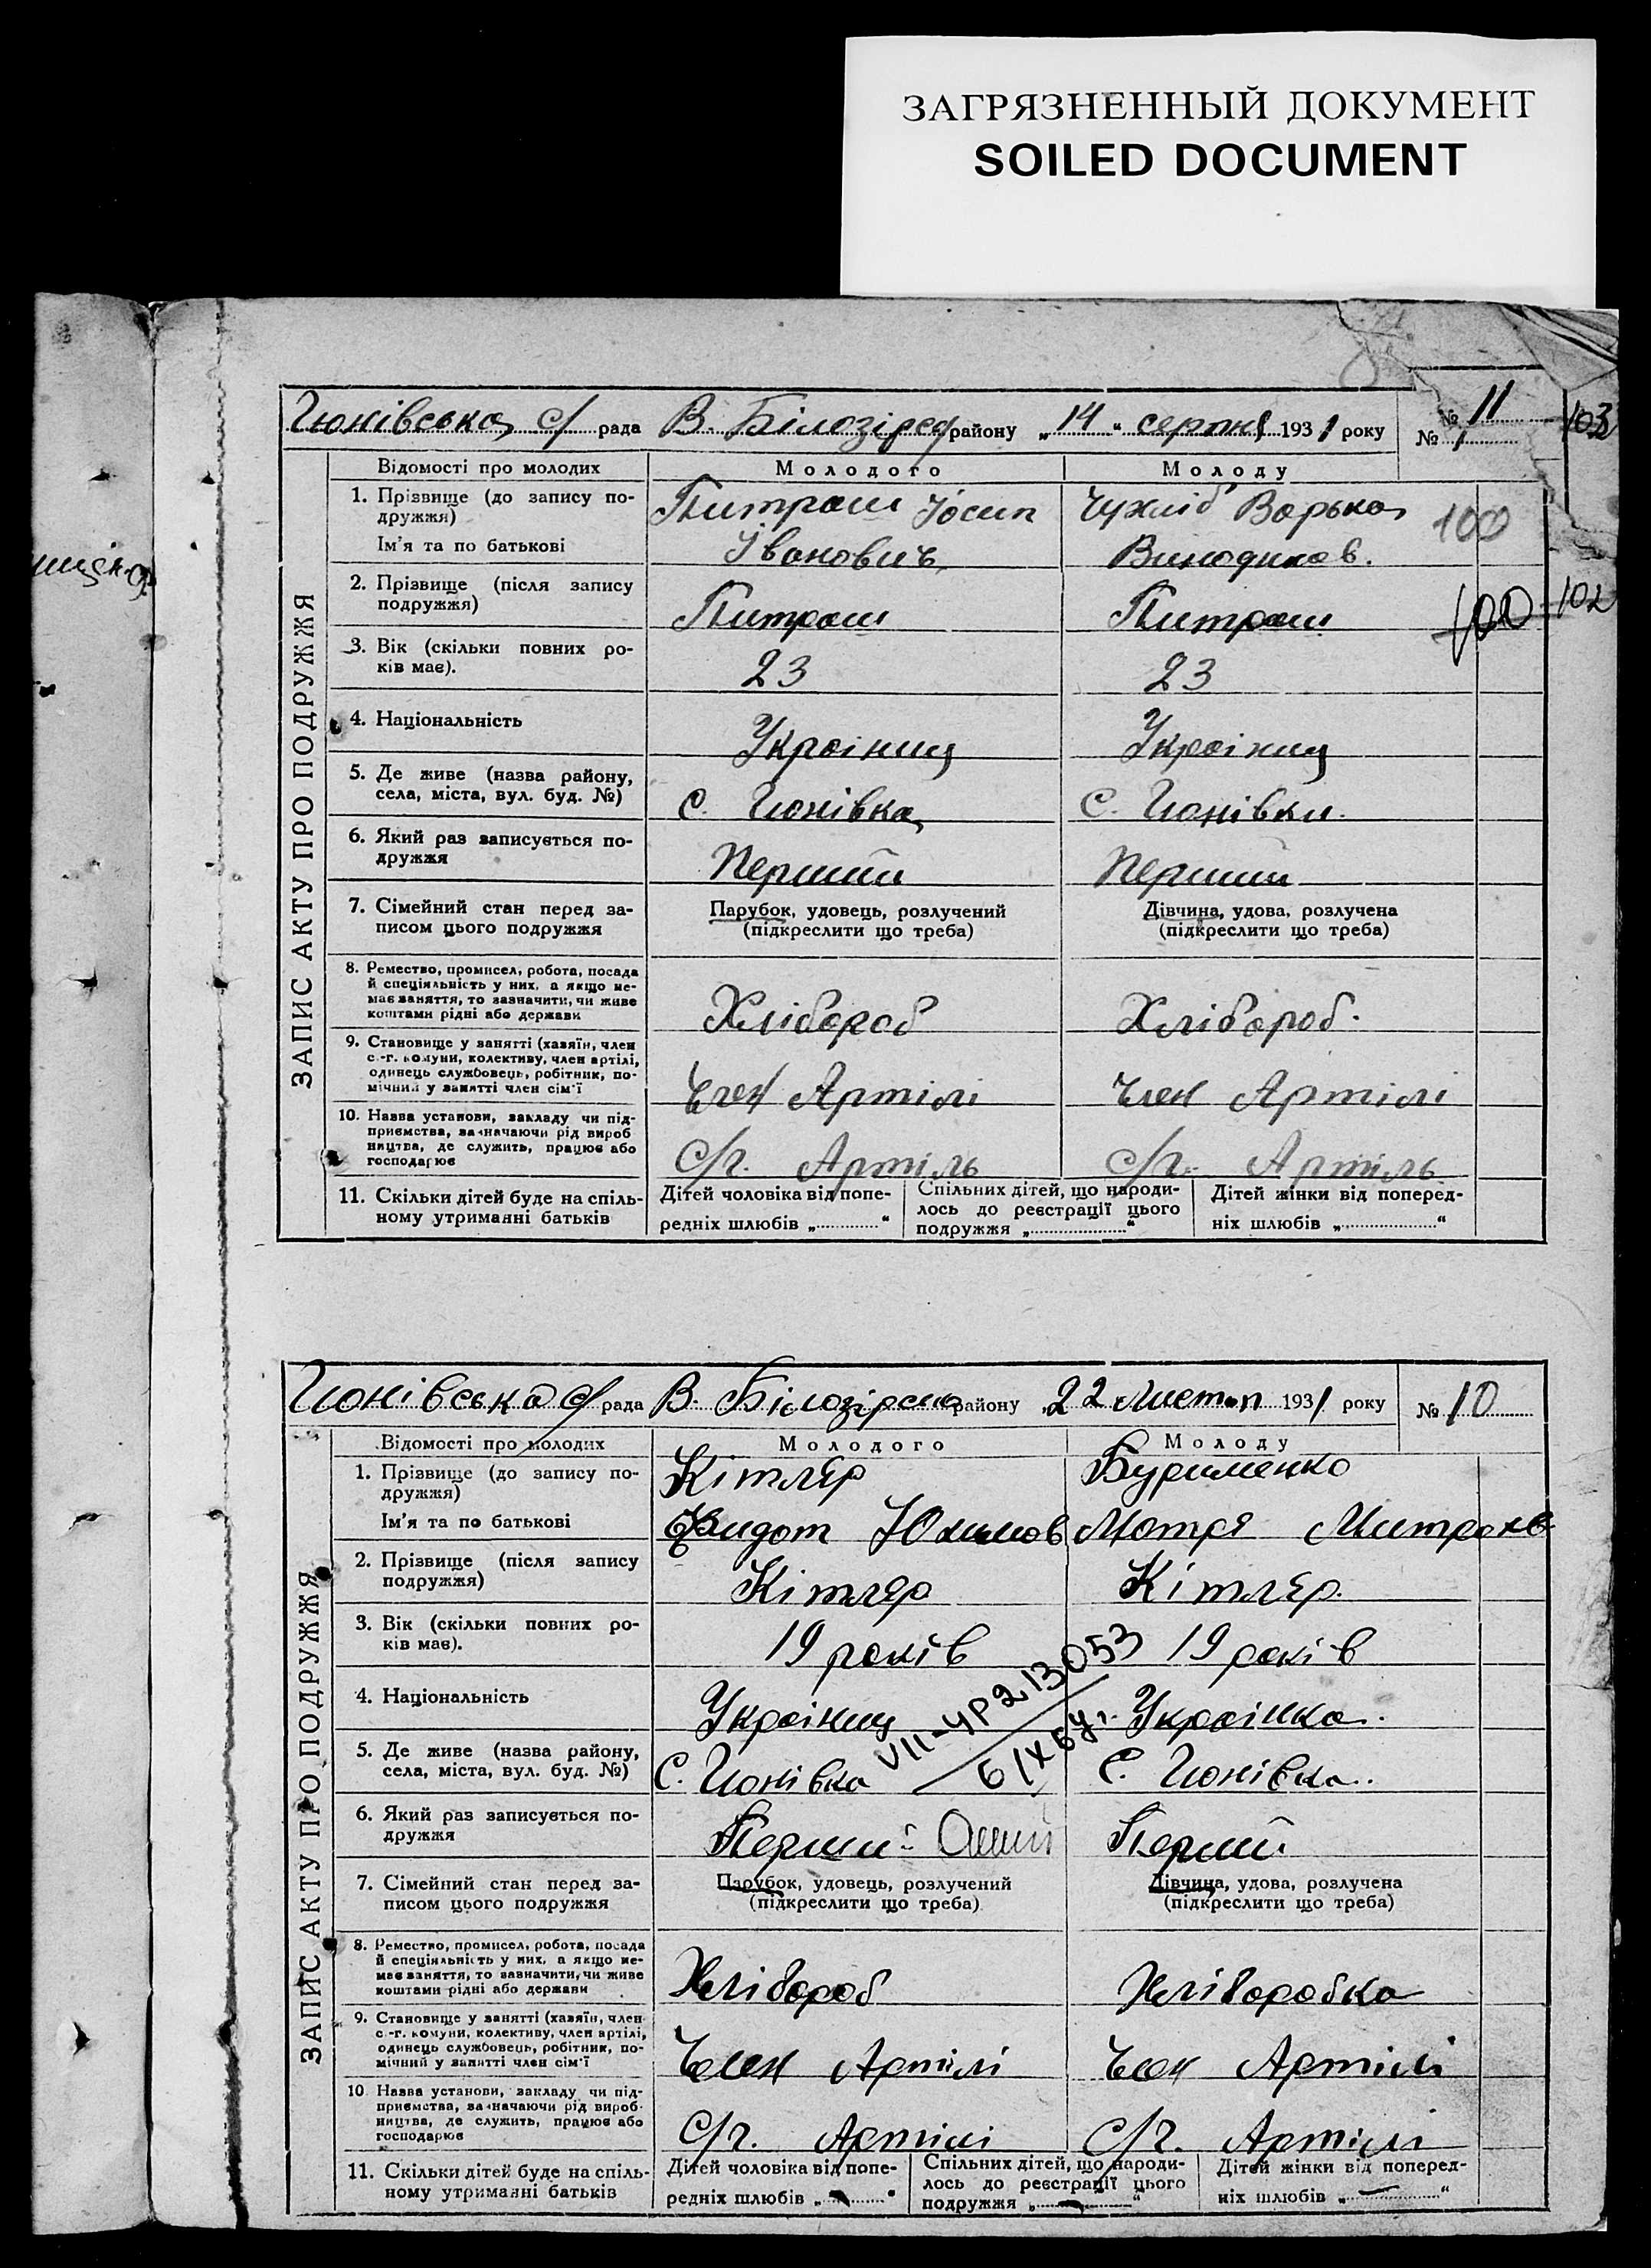 ЗАГРЯЗНЕННЫЙ ДОКУМЕНТ
SOILED DOCUMENT
Йонівська с/ рада В. Білозірсь району „14“ серпня 1931 року № 11
№ 1
103
Відомості про молодих
Молодого
Молоду
1. Прізвище (до запису по-
дружжя)
Ім'я та по батькові
Питраш Йосип
Іванович
Чухліб Варька
100
2. Прізвище (після запису
подружжя)
Питраш
Питраш
100
102
3. Вік (скільки повних ро-
ків має).
23
23
4. Національність
Україниц
Україниц
5. Де живе (назва району,
села, міста, вул. буд. №)
с. Йонівка
с. Йонівки.
6. Який раз записується по-
дружжя
Перший
Перший
7. Сімейний стан перед за-
писом цього подружжя
Парубок, удовець, розлучений
(підкреслити що треба)
Дівчина, удова, розлучена
(підкреслити що треба)
8. Ремество, промисел, робота, посада
й спеціяльність у них, а якщо не-
має заняття, то зазначити, чи живе
коштами рідні або держави
Хлібороб
Хлібороб.
9. Становище у занятті (хазяїн, член
с.-г. комуни, колективу, член артілі,
одинець службовець, робітник, по-
мічний у занятті член сім'ї
Член Артілі
Член Артілі
10. Назва установи, закладу чи під-
приємства, зазначаючи рід вироб
ництва, де служить, працює або
господарює
С/г. Артіль
с/г. Артіль
11. Скільки дітей буде на спіль-
ному утриманні батьків
Дітей чоловіка від попе-
редніх шлюбів „............“
Спільних дітей, що народи-
лось до реєстрації цього
подружжя „............“
Дітей жінки від поперед-
ніх шлюбів „............“
ЗАПИС АКТУ ПРО ПОДРУЖЖЯ
Йонівська с/ рада В. Білозірсь району „22 листоп 1931 року № 10
Відомості про молодих
Молодого
Молоду
1. Прізвище (до запису по-
дружжя)
Ім'я та по батькові
Кітлєр
Юхимов
Бурименко
Мотря Митрохв
2. Прізвище (після запису
подружжя)
Кітлєр
Кітлєр.
3. Вік (скільки повних ро-
ків має).
19 років
19 років
VII-УР 213053
6/X 6 г.
4. Національність
Україниц
Українка.
5. Де живе (назва району,
села, міста, вул. буд. №)
С. Йонівка
С. Йонівка.
6. Який раз записується по-
дружжя
Перший
Перший
7. Сімейний стан перед за-
писом цього подружжя
Парубок, удовець, розлучений
(підкреслити що треба)
Дівчина, удова, розлучена
(підкреслити що треба)
8. Ремество, промисел, робота, посада
й спеціяльність у них, а якщо не-
має заняття, то зазначити, чи живе
коштами рідні або держави
Хлібороб
Хліборобка
9. Становище у занятті (хазяїн, член
с.-г. комуни, колективу, член артілі,
одинець службовець, робітник, по-
мічний у занятті член сім'ї
Член Артілі
Член Артілі
10 Назва установи, закладу чи під-
приємства, зазначаючи рід вироб-
ництва, де служить, працює або
господарює
С/г. Артілі
С/г. Артілі
11. Скільки дітей буде на спіль-
ному утриманні батьків
Дітей чоловіка від попе-
редніх шлюбів „............“
Спільних дітей, що народи-
лось до реєстрації цього
подружжя „............“
Дітей жінки від поперед-
ніх шлюбів „............“
ЗАПИС АКТУ ПРО ПОДРУЖЖЯ